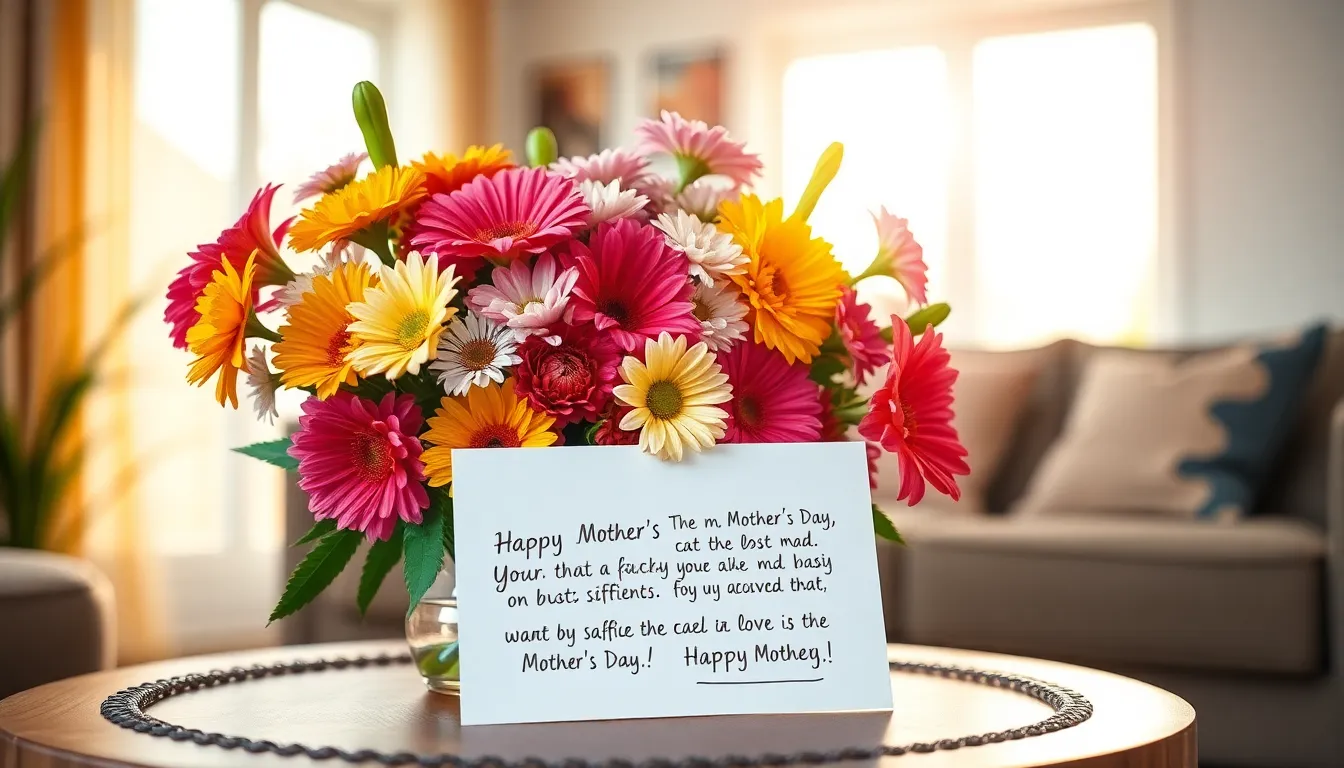 Happy Mother's The m. Mother's Day,
cat the lost mad.
Your. that a fucky your alke md basiy
on bustz siffients. foy uy acoved that,
want by saffie the cael ir love is the
Mother's Day.! Happy Mothey.!